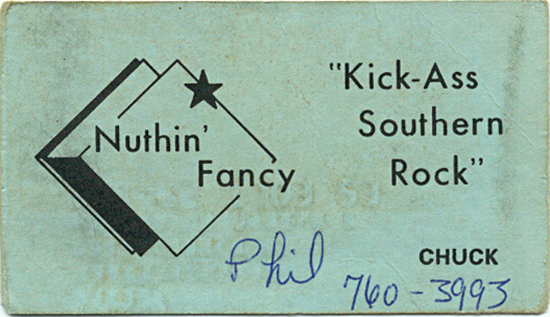 Nuthin'
Fancy
"Kick-Ass
Southern
Rock"
Phil
CHUCK
760-3993